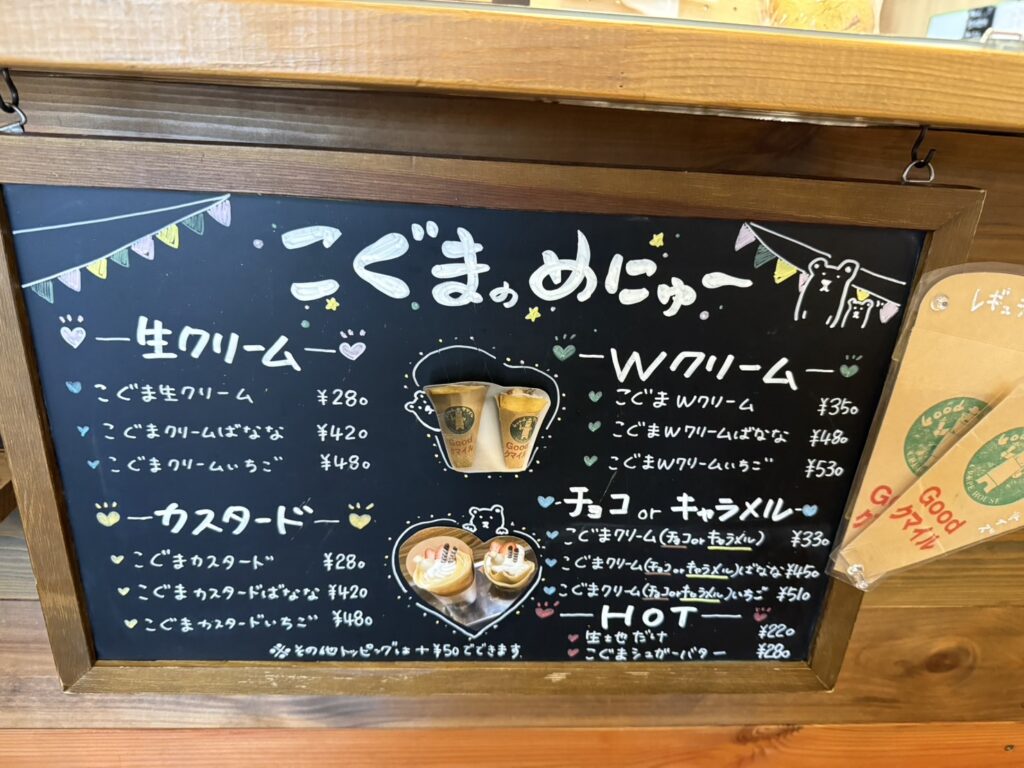 こぐまのめにゅー
生クリーム
こぐま生クリーム ¥280
こぐまクリームばなな ¥420
こぐまクリームいちご ¥480
カスタード
こぐまカスタード ¥280
こぐまカスタードばなな ¥420
こぐまカスタードいちご ¥480
Good
クマイル
Good
クマイル
Wクリーム
こぐまWクリーム ¥350
こぐまWクリームばなな ¥480
こぐまWクリームいちご ¥530
チョコ or キャラメル
こぐまクリーム(チョコorキャラメル) ¥330
こぐまクリーム(チョコorキャラメル)ばなな ¥450
こぐまクリーム(チョコorキャラメル)いちご ¥510
HOT
生も地だけ ¥220
こぐまシュガーバター ¥280
その他トッピングは +¥50でできます
レギュラ
Good
Good
クマイル